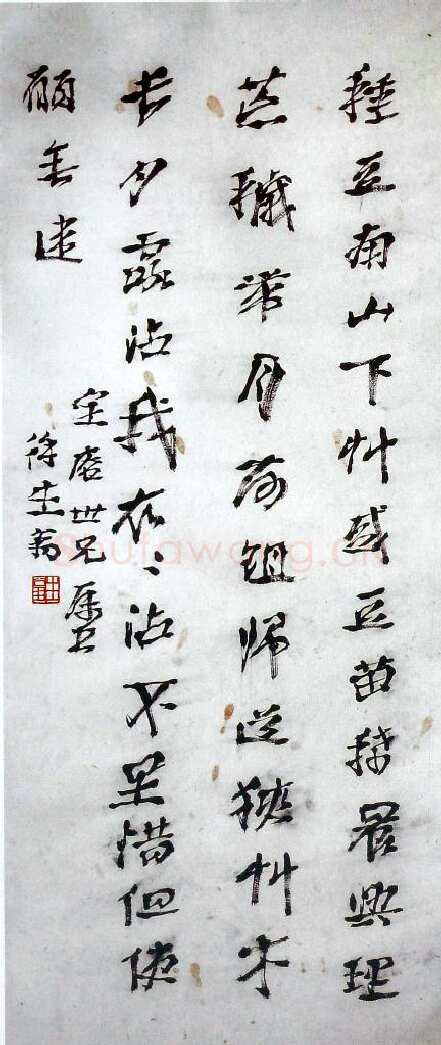 種豆南山下艸盛豆苗稀晨興理
荒穢帶月荷鉏歸道狹艸木
長夕露沾我衣〻沾不足惜但使
願無違
世兄屬正
徐生翁
Shufawang.cn